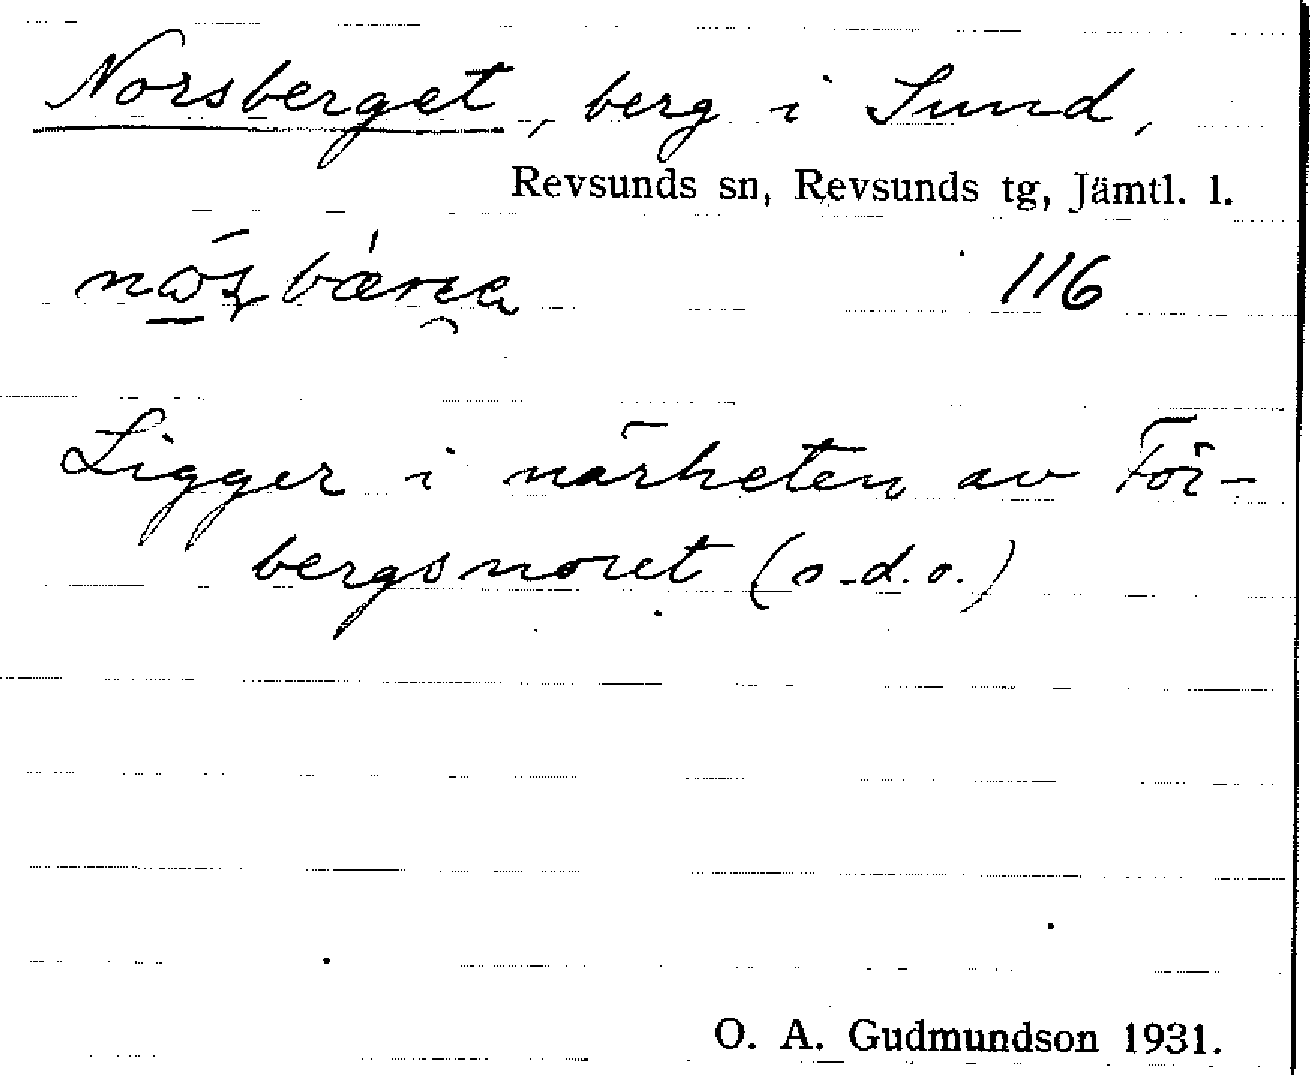 Norsberget, berg i Sund,
Revsunds sn, Revsunds tg, Jämtl. l.
116
Ligger i närheten av För-
bergsnoret (s.d.o.)
O. A. Gudmundson 1931.